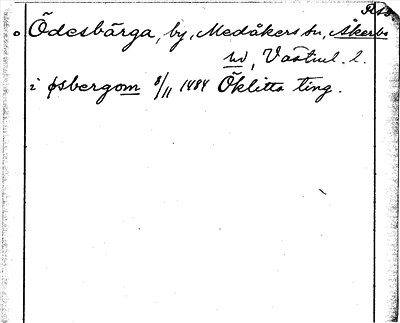 Ödesbärga, by, Medåkers sn, Åkerbo
hd, Västml. l.
i øsbergom 8/11 1484 Öklitta ting.